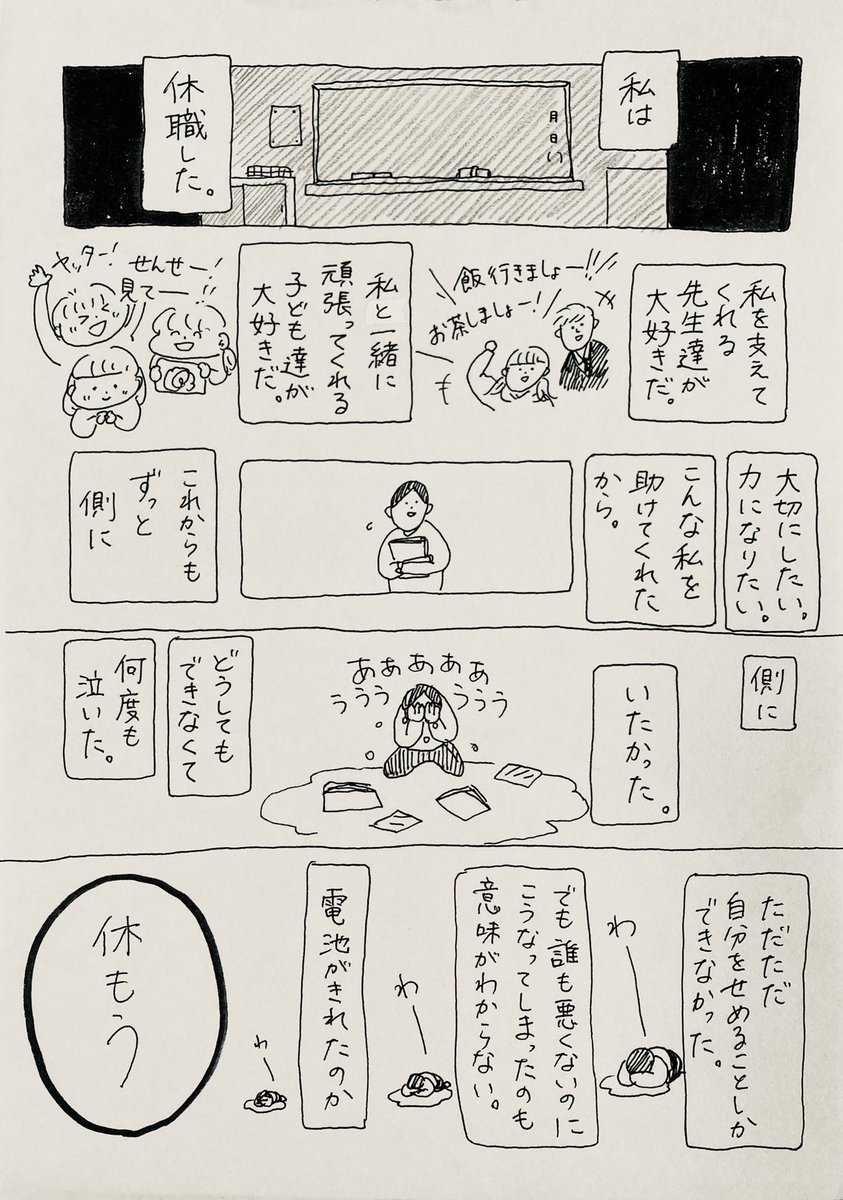 私は
月
日
い
休職した。
私を支えて
くれる
先生達が
大好きだ。
飯行きましょー!!
お茶しましょー!
私と一緒に
頑張ってくれる
子ども達が
大好きだ。
せんせー!
見てー!!
ヤッター!
大切にしたい。
力になりたい。
こんな私を
助けてくれた
から。
これからも
ずっと
側に
側に
いたかった。
あぁぁぁぁ
ううう
ううう
どうしても
できなくて
何度も
泣いた。
ただただ
自分をせめることしか
できなかった。
わ
でも誰も悪くないのに
こうなってしまったのも
意味がわからない。
わ
電池がきれたのか
わ
休もう